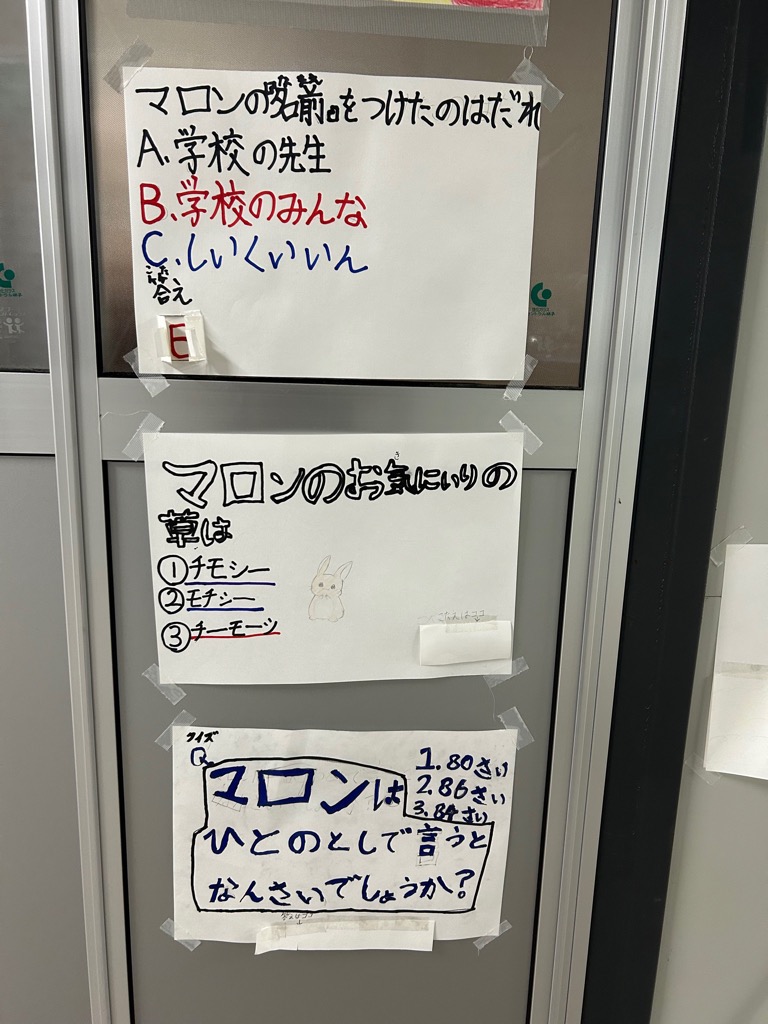 マロンの名前をつけたのはだれ
A.学校の先生
B.学校のみんな
C.しいくいいん
答え
マロンのお気にいりの
草は
①チモシー
②モチシー
③チーモーツ
こたえはココ
クイズ
Q.
マロンは
ひとのとしで言うと
なんさいでしょうか?
1.80さい
2.86さい
3.84さい